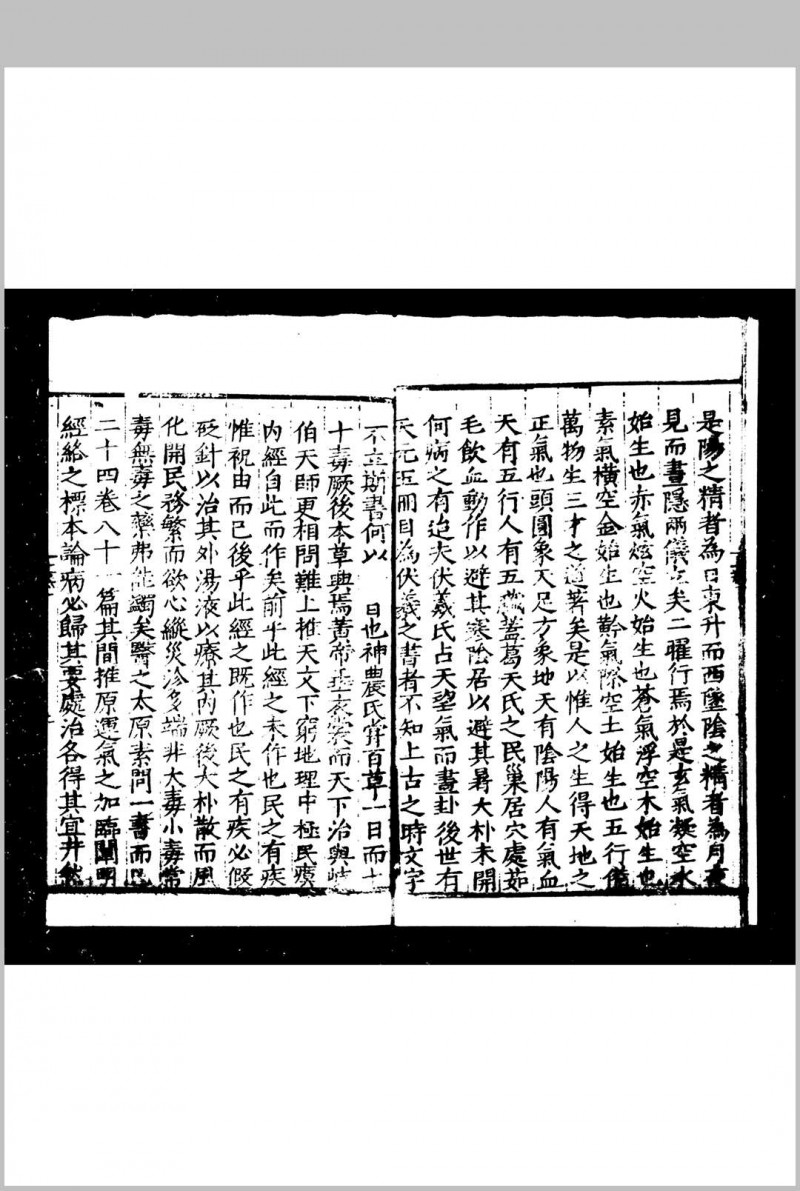 是陽之精者為日東升而西墜陰之精者為月夜
見而晝隱兩儀立矣二曜行焉於是玄氣凝空水
始生也赤氣炫空火始生也蒼氣浮空木始生也
素氣橫空金始生也黅氣際空土始生也五行備
萬物生三才之道著矣是以惟人之生得天地之
正氣也頭圓象天足方象地天有陰陽人有氣血
天有五行人有五臟蓋葛天氏之民巢居穴處茹
毛飲血動作以避其寒陰居以避其暑大朴未開
何病之有迨夫伏羲氏占天望氣而畫卦後世有
天元玉冊目為伏羲之書者不知上古之時文字
不立斯書何以 日也神農氏嘗百草一日而七
十毒厥後本草興焉黃帝垂衣裳而天下治與岐
伯天師更相問難上推天文下窮地理中極民瘼
內經自此而作矣前乎此經之未作也民之有疾
惟祝由而已後乎此經之既作也民之有疾必假
砭針以治其外湯液以療其內厥後大朴散而風
化開民務繁而欲心縱災沴多端非大毒小毒常
毒無毒之藥弗能蠲矣醫之太原素問一書而已
二十四卷八十一篇其間推原運氣之加臨闡明
經絡之標本論病必歸其要處治各得其宜井然